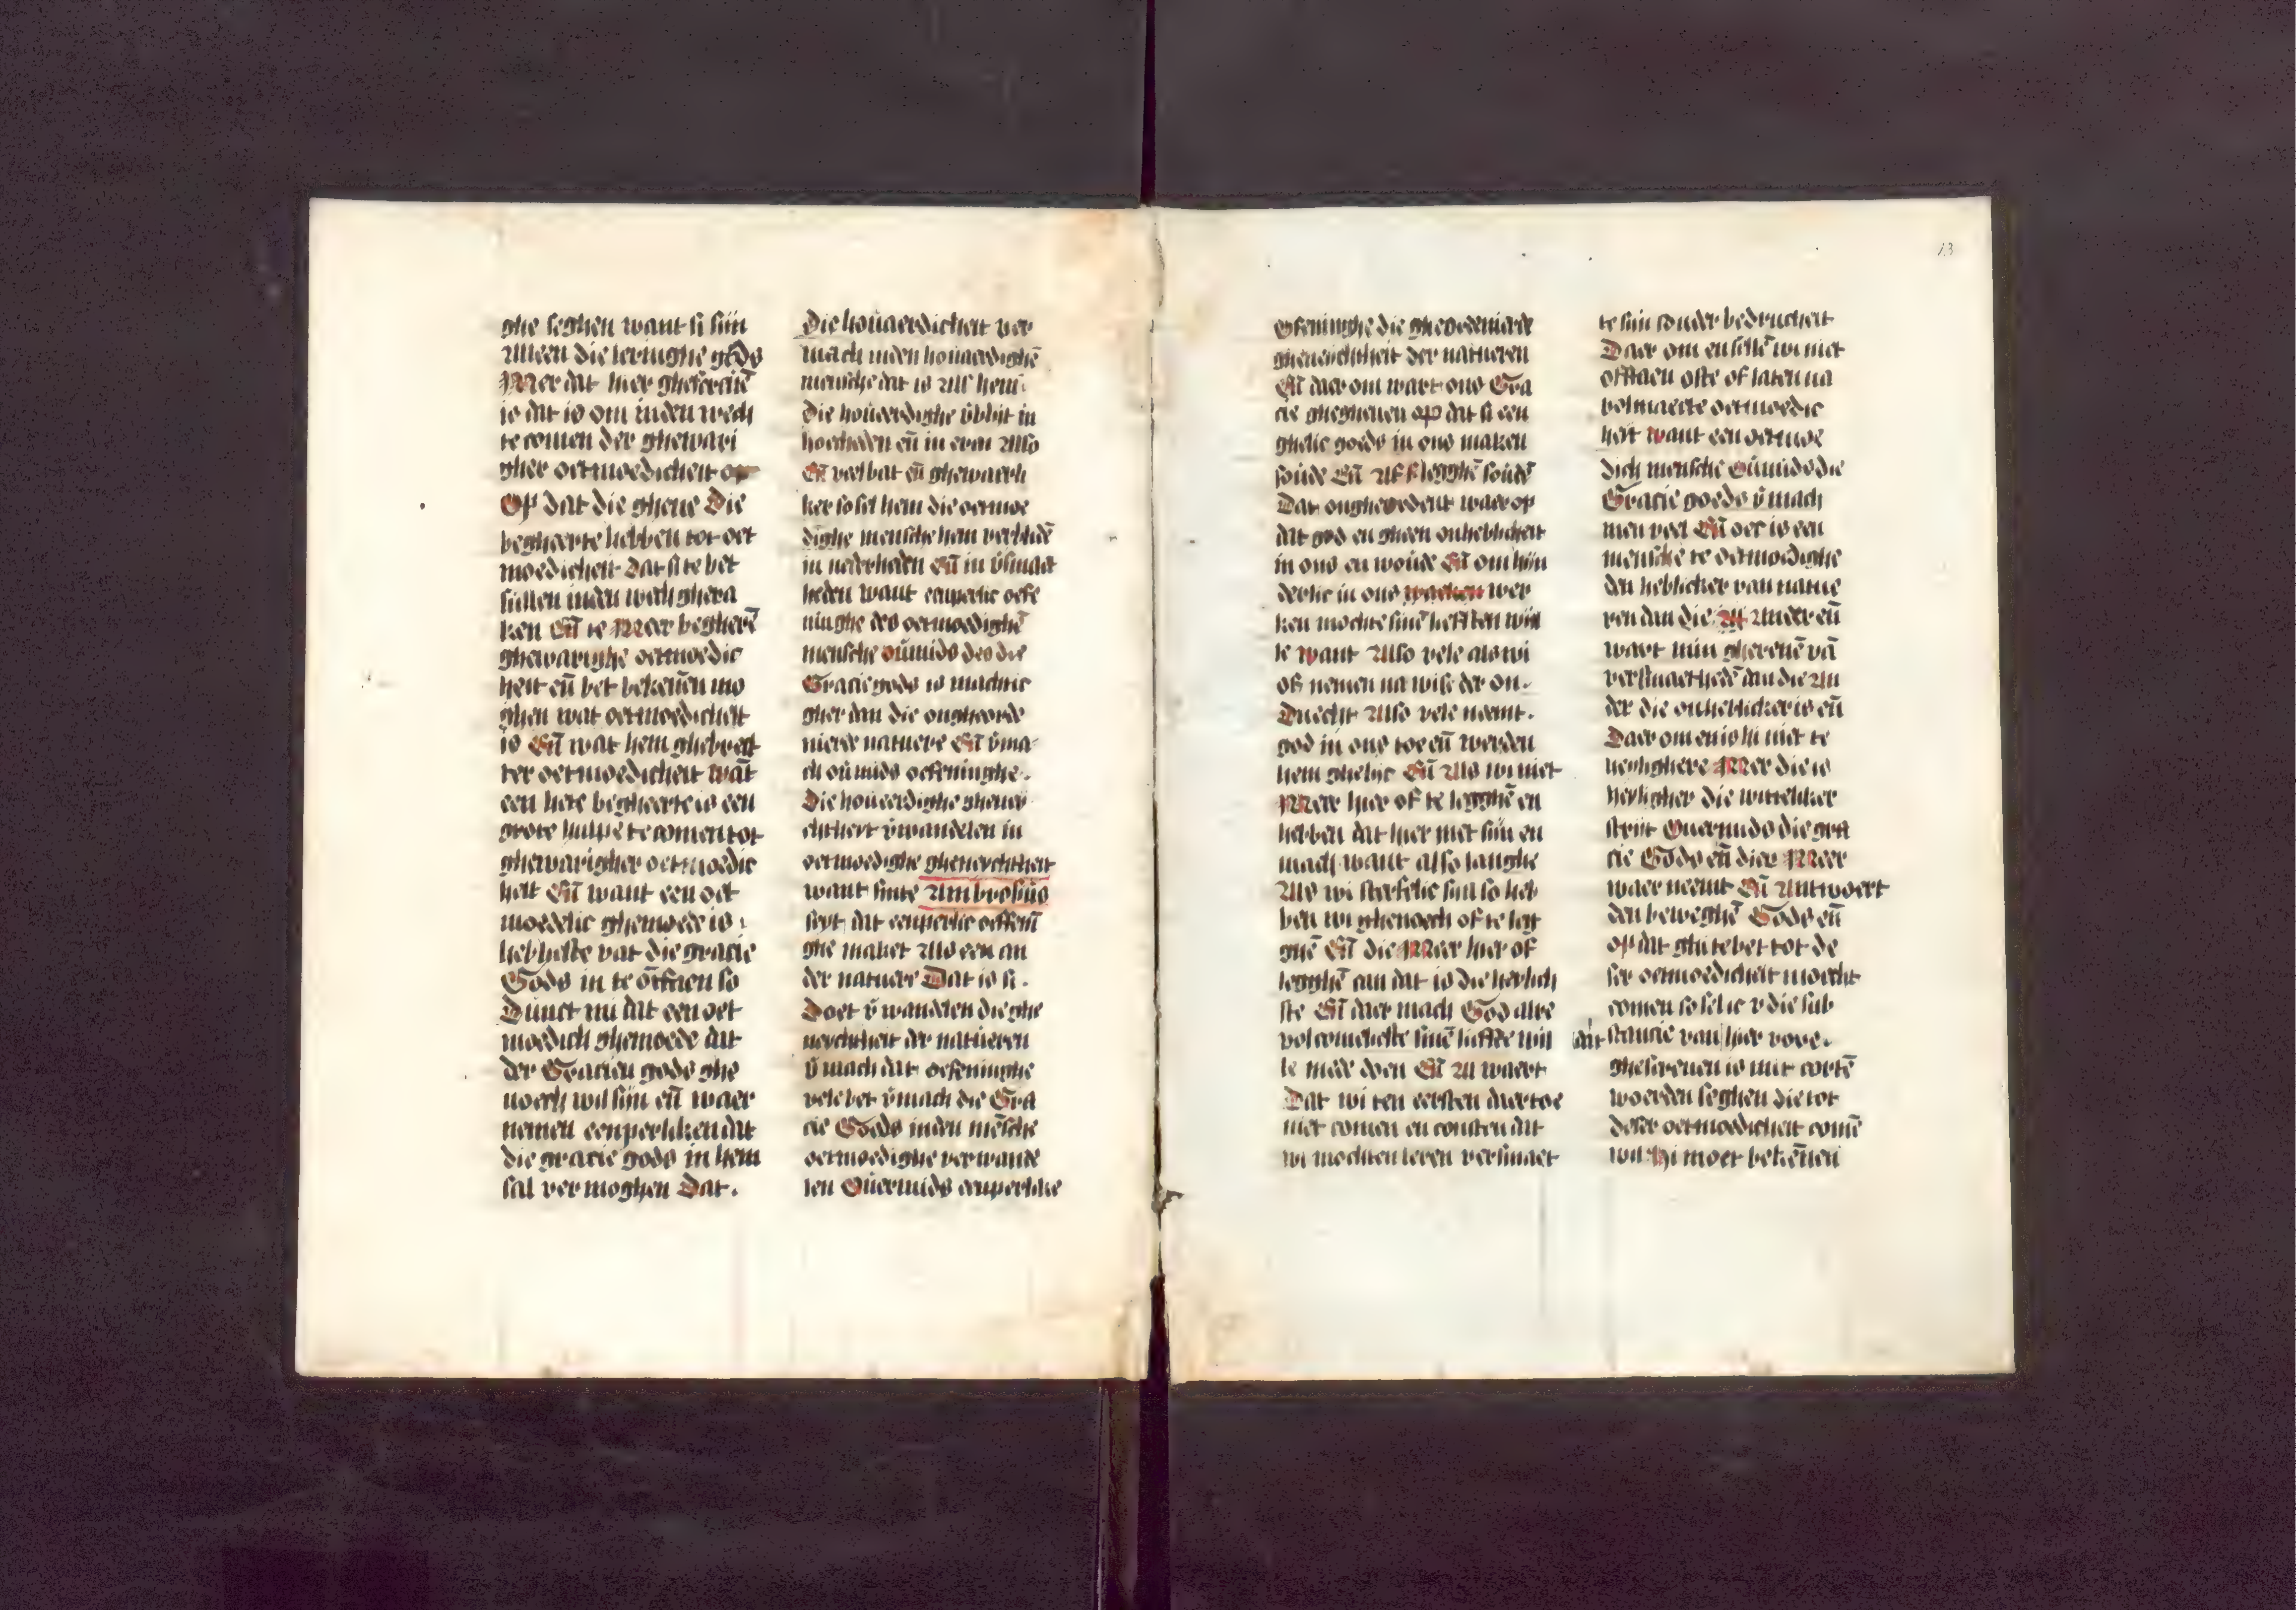 ghe seghen want si siin
Alleen die leringhe gods
Mer dat hier ghescreuē
is dat is om inden wech
te comen der ghewari
gher oetmoedicheit
Op dat die ghene Die
begheerte hebben tot oet
moedicheit Dat si te bet
sullen inden wech ghera
ken Eñ te Meer begherē
ghewarighe oetmoedic
heit eñ bet bekeñen mo
ghen wat oetmoedicheit
is Eñ wat hem ghebreect
ter oetmoedicheit wāt
een hete begheerte is een
grote hulpe te comen tot
ghewarigher oetmoedic
heit Eñ want een oet
moedelic ghemoede is
liebhelste vat die gracie
Gods in te ōtfaen so
Dunct mi dat een oet
moedich ghemoede dat
der Gracien gods ghe
noech wil siin eñ waer
nemen eenperliken dat
die gracie gods in hem
sal vermoghen Dat.
Die houaerdicheit ver
mach inden houaerdighē
mensche dat is Als hem
Die houaerdighe v̄blijt in
hoecheden eñ in eren Also
Eñ veel bat eñ ghewarli
ker so sel hem die oetmoe
dighe mensche hem verblidē
in nederheden Eñ in v̄smaet
heden want eenperlic oefe
ninghe des oetmoedighē
mensche ouermids des die
Gracie gods is machtic
gher dan die ongheorde
nierde natuere Eñ v̄ma
ch ouermids oefeninghe.
Die houaerdighe gheney
chtheit v̄wandelen in
oetmoedighe gheneychtheit
want sinte Ambrosius
seyt dat eenperlic oeffenī
ghe maket Als een an
der natuere Dat is si.
Doet v̄wandelen die ghe
neychtheit der natueren
v̄mach dat oefeninghe
vele bet v̄mach die Gra
cie Gods inden mēsche
oetmoedighe verwande
len Ouermids eenperlike
13
Ofeninghe die gheordenierde
gheneichtheit der natueren
Eñ daer om wart ons Gra
cie ghegheuen op dat si een
ghelic gods in ons maken
soude Eñ Af legghē soudē
Dat onghevordent waer op
dat god en gheen onlieblicheit
in ons en vonde Eñ om hin
derlic in ons wer
ken mochte sinē liefsten wil
le want Also vele als wi
of nemen na wise der on.
Duecht Also vele neemt.
god in ons toe eñ werden
hem ghelijc Eñ Als wi niet
Meer hier of te legghē en
hebben dat hier niet siin en
mach want also langhe
Als wi sterfelic siin so heb
ben wi ghenoech of te leg
ghē Eñ die Meer hier of
legghē can dat is die heylich
ste Eñ daer mach God alre
volcomelicste sinē liefste wil
le mede doen Eñ Al waert
Dat wi ten eersten daer toe
niet comen en consten dat
wi mochten leren versmaet
te siin sonder bedructheit
Daer om en sellē wi niet
offtaen ofte of laten na
volmaecte oetmoedic
heit want een oetmoe
dich mensche ouermids die
Gracie gods v̄mach
men veel Eñ oec is een
mensche te oetmoedighe
den lieblicker van natue
ren dan die Ander eñ
wart min ghereuē vā
versmaethedē dan die An
der die onlieblicker is eñ
Daer om en is hi niet te
heylighere Mer die is
heyligher die wittelliker
strijt Ouermids die gra
cie Gods eñ dies Meer
waer neemt Eñ Antwoert
den beweghē Gods eñ
op dat ghi te bet tot de
ser oetmoedicheit moecht
comen so sel ic v die sub
stancie van dat hier vore.
ghescreuen is mit cortē
woerden seghen die tot
deser oetmoedicheit comē
wil hi moet bekeñen